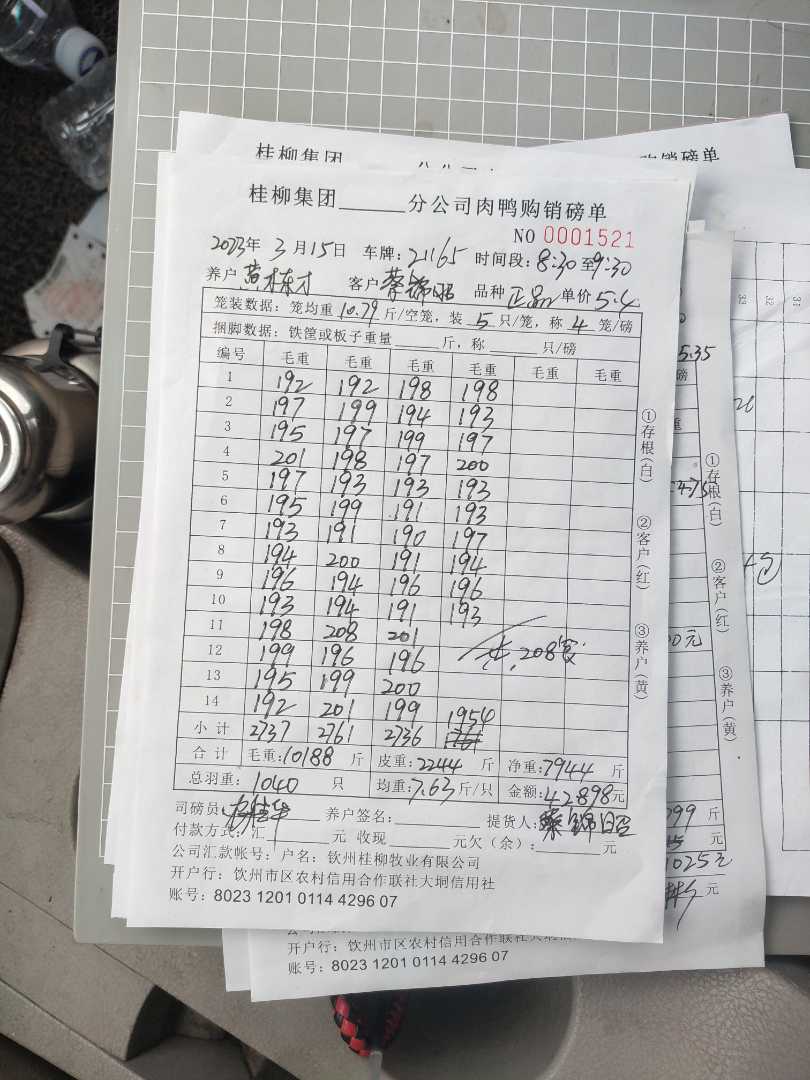 桂柳集团
购销磅单
桂柳集团______分公司肉鸭购销磅单
NO 0001521
2023年 3月15日 车牌:21165 时间段:8:30至9:30
养户 客户 蔡锦昭 品种 正品 单价 5.4
笼装数据:笼均重 10.79 斤/空笼,装 5 只/笼,称 4 笼/磅
捆脚数据:铁筐或板子重量______斤,称______只/磅
编号 毛重 毛重 毛重 毛重 毛重 毛重
1 192 192 198 198
2 197 199 194 193
3 195 197 199 197
4 201 198 197 200
5 197 193 193 193
6 195 199 191 193
7 193 191 190 197
8 194 200 191 194
9 196 194 196 196
10 193 194 191 193
11 198 208 201
12 199 196 196 208
13 195 199 200
14 192 201 199 1954
小计 2737 2761 2736
合计 毛重:10188 斤 皮重:2244 斤 净重:7944 斤
总羽重:1040 只 均重:7.63 斤/只 金额:42898元
司磅员: 养户签名:______ 提货人:蔡锦昭
付款方式:汇______元 收现______元欠(余):______元
公司汇款帐号:户名:钦州桂柳牧业有限公司
开户行:钦州市区农村信用合作联社大垌信用社
账号:8023 1201 0114 4296 07
①存根(白) ②客户(红) ③养户(黄)
5.35
磅
①存根(白) ②客户(红) ③养户(黄)
斤
元
1025元
元
开户行:钦州市区农村信用合作联社大垌信
账号:8023 1201 0114 4296 07
33
32
31